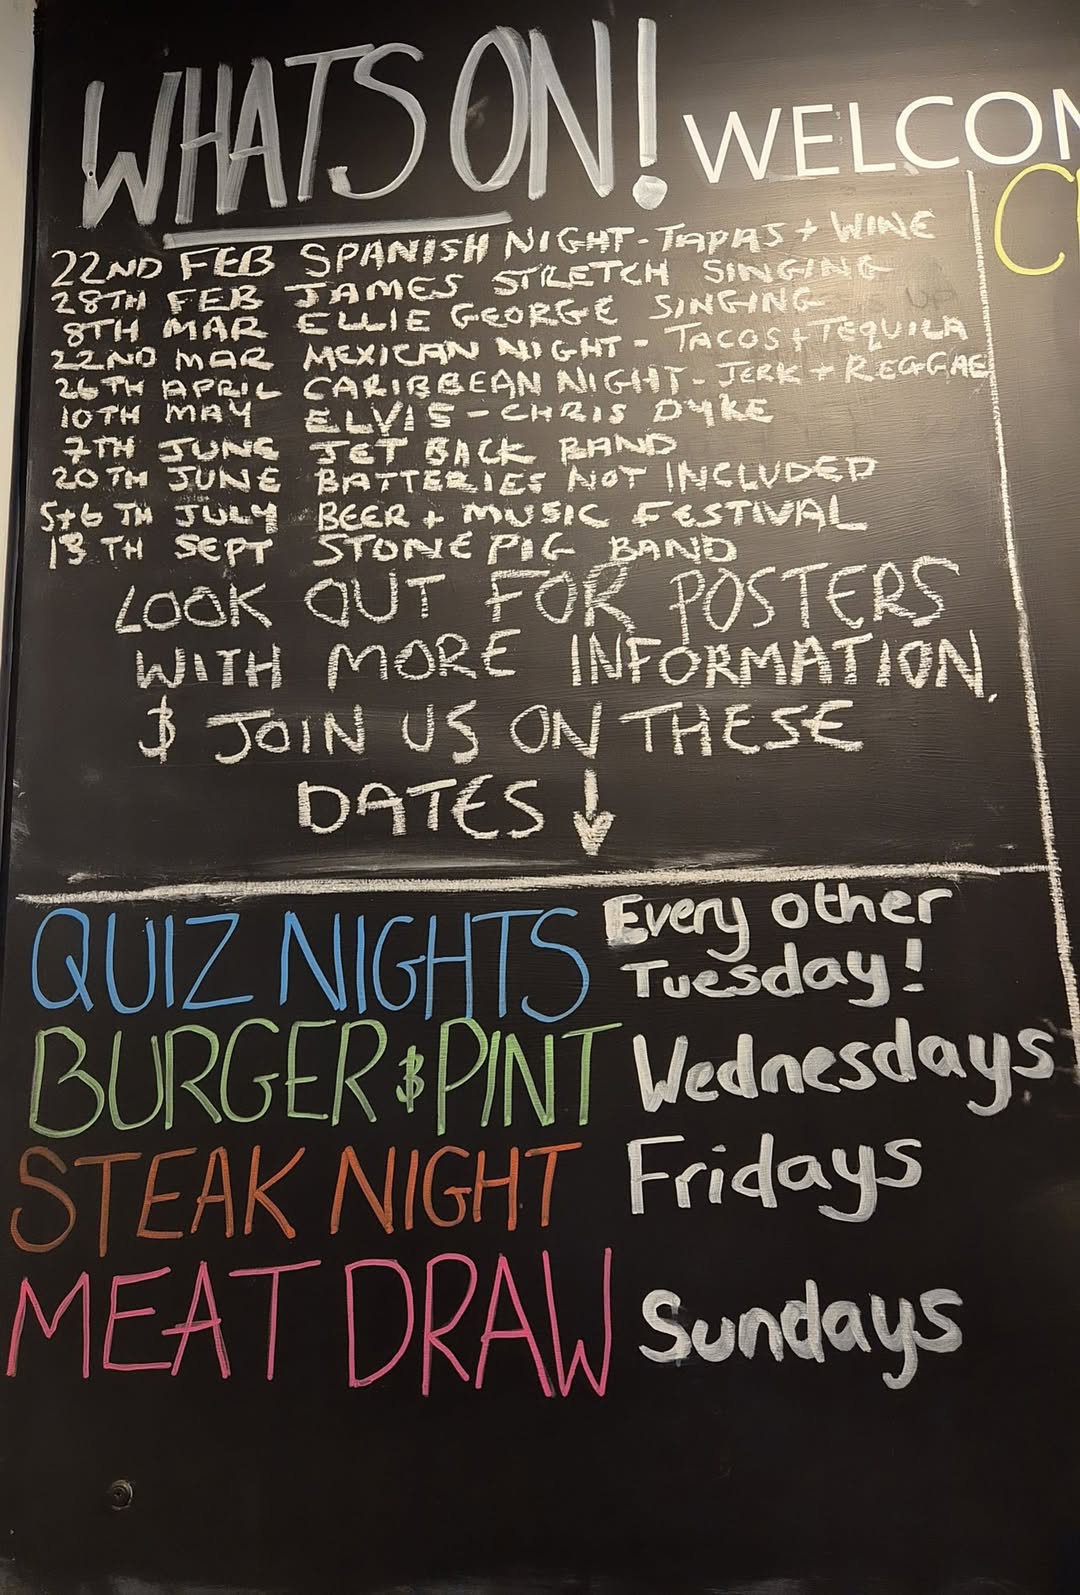 WHATS ON!
WELCOM
22ND FEB SPANISH NIGHT - TAPAS + WINE
28TH FEB JAMES STRETCH SINGING
8TH MAR ELLIE GEORGE SINGING
22ND MAR MEXICAN NIGHT - TACOS + TEQUILA
26TH APRIL CARIBBEAN NIGHT - JERK + REGGAE
10TH MAY ELVIS - CHRIS DYKE
7TH JUNE JET BACK BAND
20TH JUNE BATTERIES NOT INCLUDED
5+6TH JULY BEER + MUSIC FESTIVAL
13TH SEPT STONE PIG BAND
LOOK OUT FOR POSTERS
WITH MORE INFORMATION.
& JOIN US ON THESE
DATES ↓
QUIZ NIGHTS Every other
Tuesday!
BURGER & PINT Wednesdays.
STEAK NIGHT Fridays
MEAT DRAW Sundays